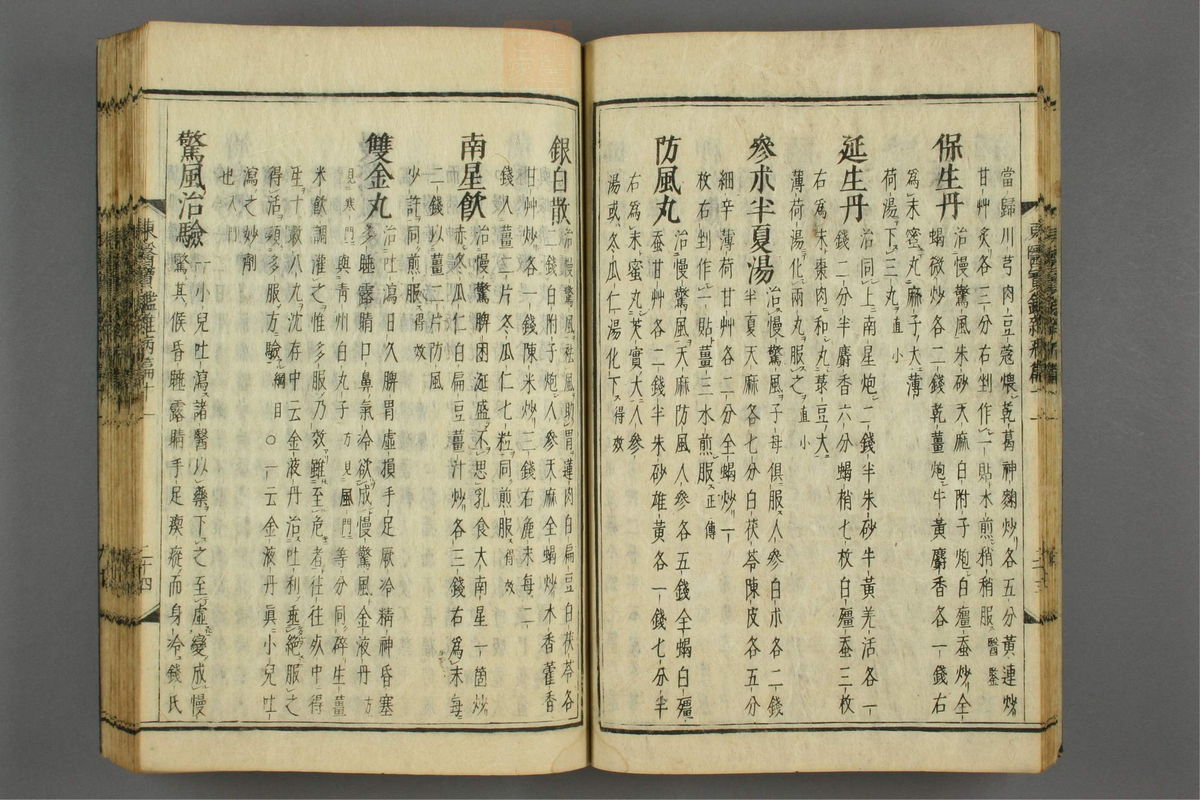 當歸川芎肉豆蔻煨乾葛神麴炒各五分黃連炒
甘艸炙各三分右剉作一貼水煎稍稍服醫鑒
保生丹治慢驚風朱砂天麻白附子炮白殭蚕炒全
蝎微炒各二錢乾薑炮牛黃麝香各一錢右
爲末蜜丸麻子大薄
荷湯下三丸直小
延生丹治同上南星炮二錢半朱砂牛黃羌活各一
錢二分半麝香六分蝎梢七枚白殭蚕三枚
右爲末棗肉和丸菉豆大
薄荷湯化兩丸服之直小
參朮半夏湯治慢驚風子母俱服人參白朮各二錢
半夏天麻各七分白茯苓陳皮各五分
細辛薄荷甘艸各二分全蝎炒一
枚右剉作一貼薑三水煎服正傳
防風丸治慢驚風天麻防風人參各五錢全蝎白殭
蚕甘艸各二錢半朱砂雄黃各一錢七分半
右爲末蜜丸芡實大人參
湯或冬瓜仁湯化下得效
銀白散治慢驚風助胃蓮肉白扁豆白茯苓各
二錢白附子炮人參天麻全蝎炒木香藿香
甘艸炒各一錢陳米炒三錢右爲末每一
錢入薑二片冬瓜仁七粒同煎服得效
南星飮治慢驚脾困涎盛不思乳食大南星一箇炒
赤冬瓜仁白扁豆薑汁炒各三錢右爲末每
二錢以薑二片防風
少許同煎服得效
雙金丸治吐瀉日久脾胃虛損手足厥冷精神昏塞
多睡露睛口鼻氣冷欲成慢驚風金液丹方
見寒門與靑州白丸子方見風門等分同碎生薑
米飮調灌之惟多服乃效雖至危者往往死中得
生十救八九沈存中云金液丹治吐利垂絶服之
得活須多服方驗綱目〇一云金液丹眞小兒吐
瀉之妙劑
也入門
驚風治驗一小兒吐瀉諸醫以藥下之至虛變成慢
驚其候昏睡露睛手足瘈瘲而身冷錢氏
東醫寶鑑雜病篇十一
二十四